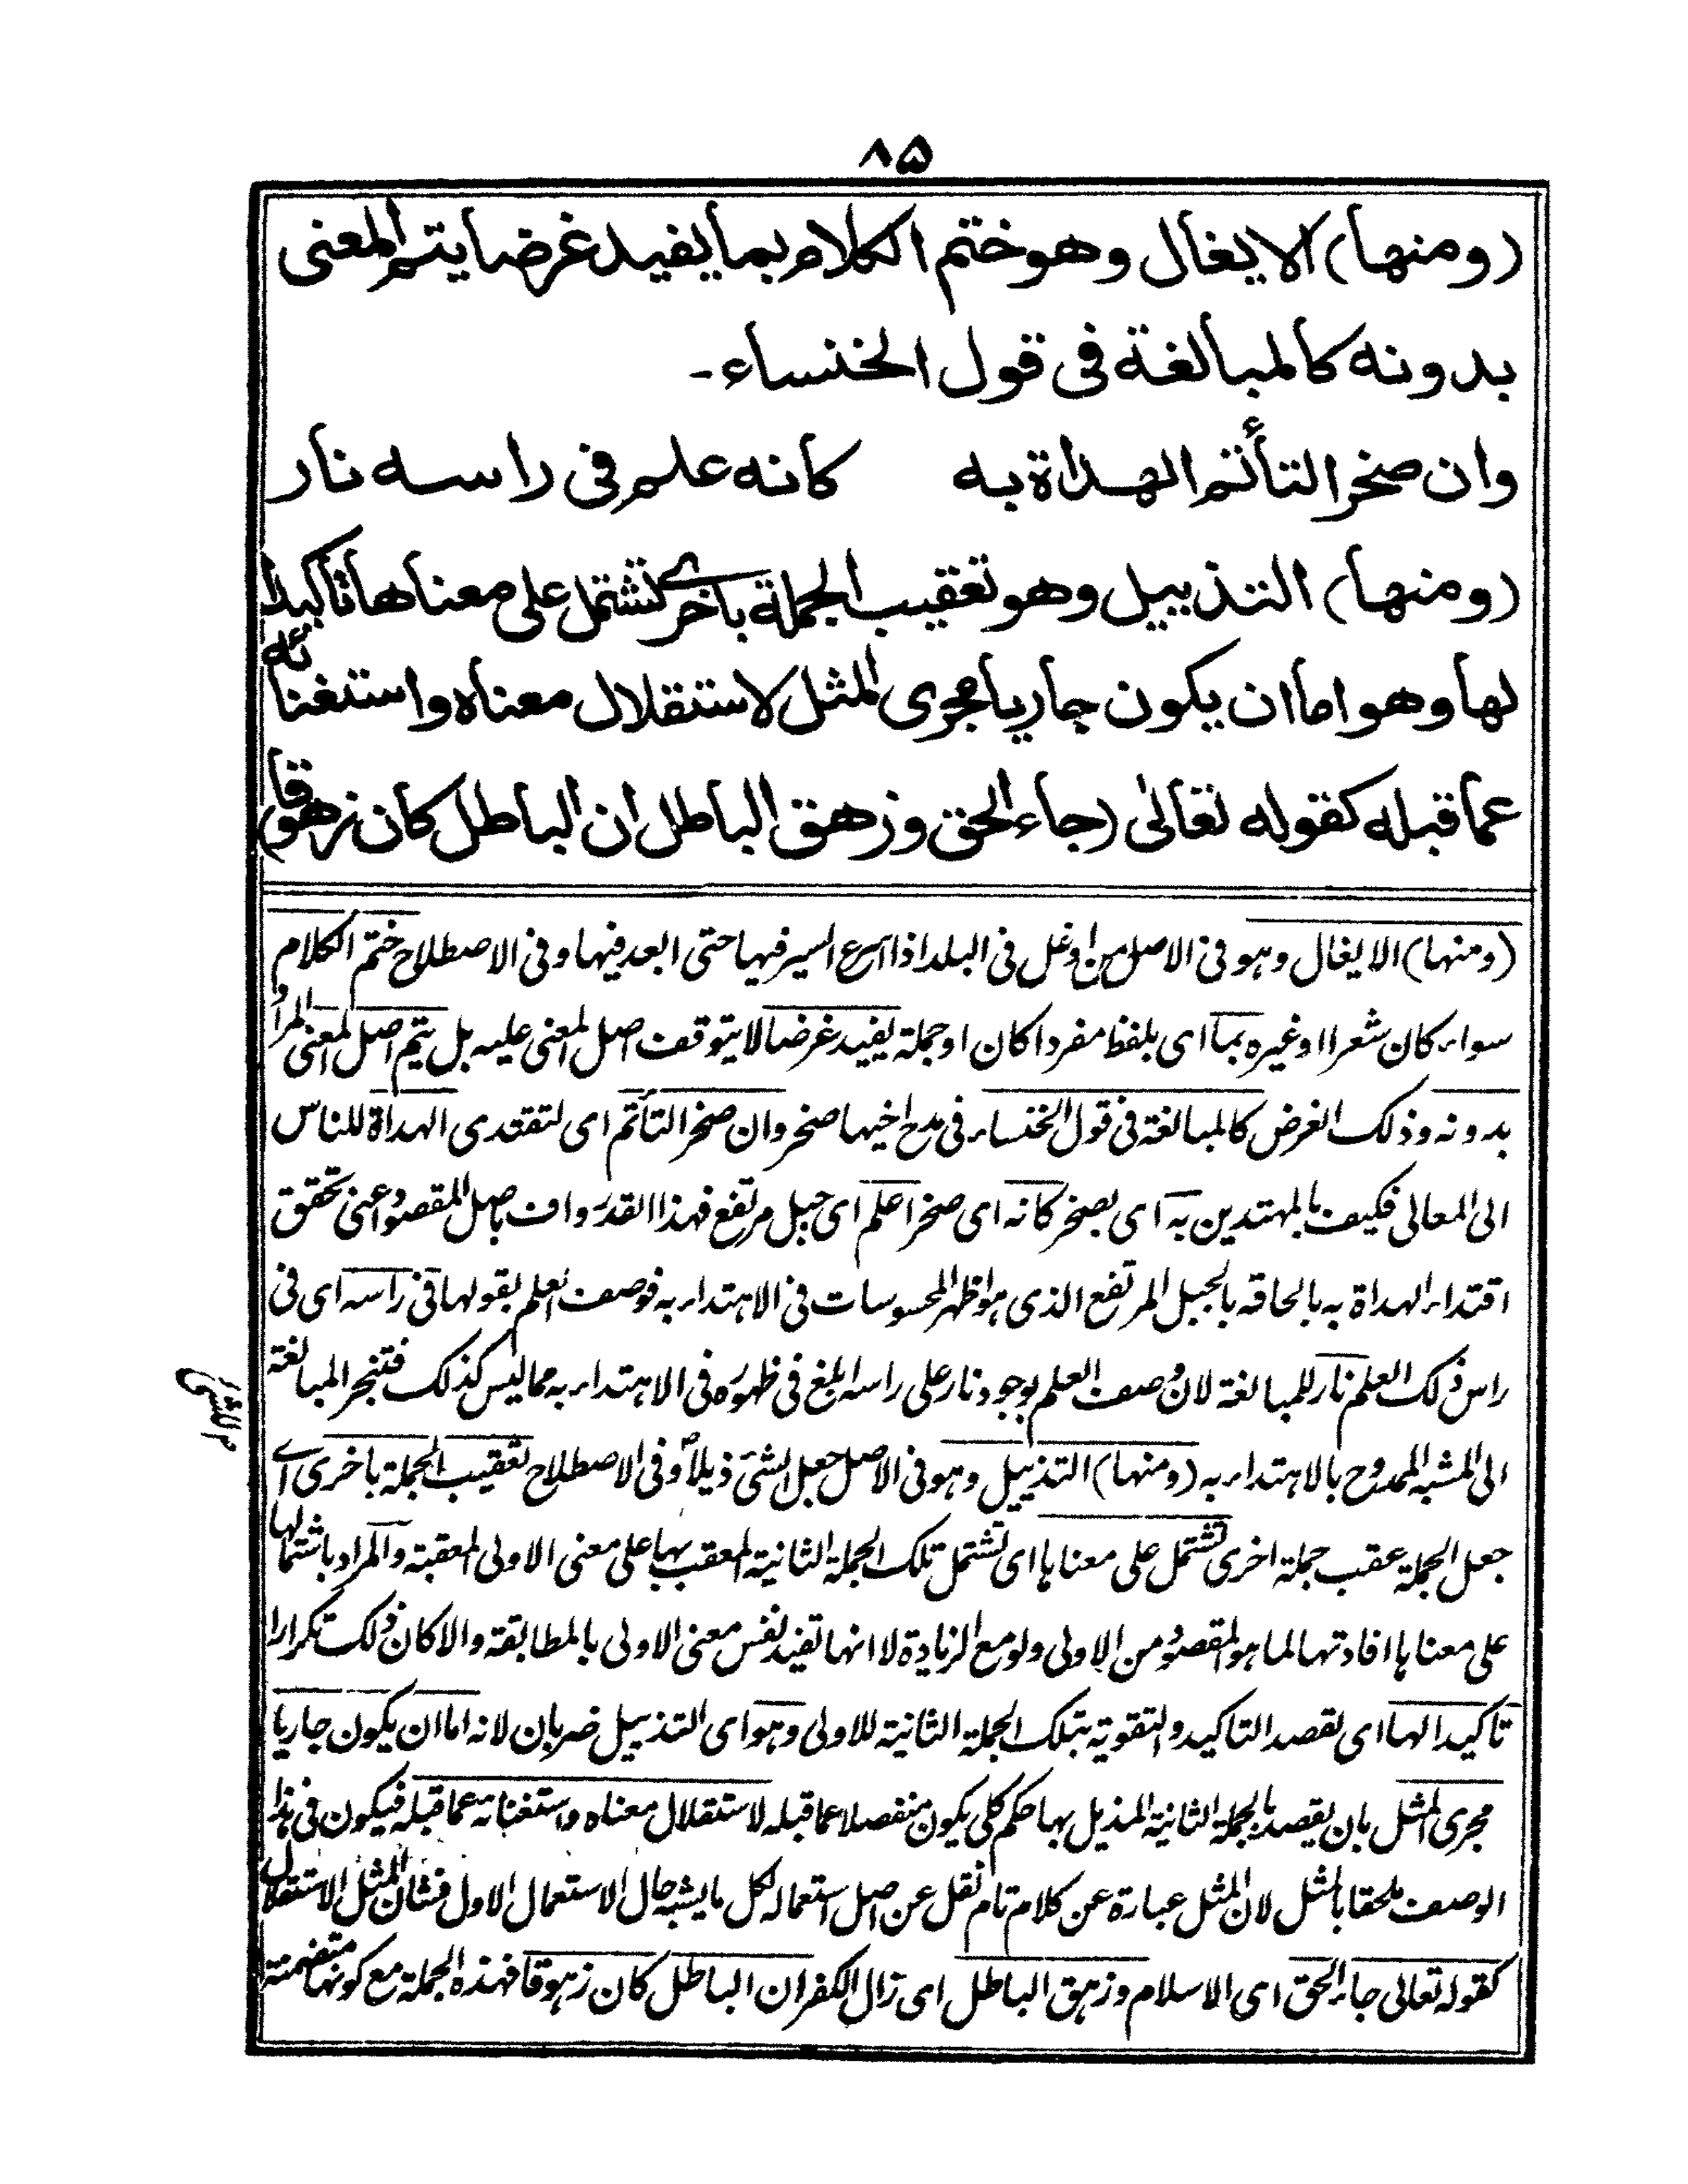 ٨٥
(ومنها) الايغال وهو ختم الكلام بما يفيد غرضا يتم المعنى
بدونه كالمبالغة فى قول الخنساء-
وان صخرا لتأتم الهداة به كانه علم فى راسه نار
(ومنها) التذييل وهو تعقيب الجملة باخرى تشتمل على معناها تاكيدا
لها وهو اما ان يكون جاريا مجرى المثل لاستقلال معناه واستغنائه
عما قبله كقوله تعالى (جاء الحق وزهق الباطل ان الباطل كان زهوقا)
(ومنها) الايغال وهو فى الاصل من اوغل فى البلد اذا اسرع السير فيها حتى ابعد فيها وفى الاصطلاح ختم الكلام
سواء كان شعرا او غيره بما اى بلفظ مفردا كان او جملة يفيد غرضا لا يتوقف اصل المعنى عليه بل يتم اصل المعنى المراد
بدونه وذلك الغرض كالمبالغة فى قول الخنساء فى مدح اخيها صخر وان صخرا لتأتم اى لتقتدى الهداة للناس
الى المعالى فكيف بالمهتدين به اى بصخر كانه اى صخرا علم اى جبل مرتفع فهذا القدر واف باصل المقصود اعنى تحقق
اقتداء الهداة به بالحاقه بالجبل المرتفع الذى هو اظهر المحسوسات فى الاهتداء به فوصف العلم بقولها فى راسه اى فى
راس ذلك العلم نار للمبالغة لان وصف العلم بوجود نار على راسه ابلغ فى ظهوره فى الاهتداء به مما ليس كذلك فتنجر المبالغة
الى المشبه الممدوح بالاهتداء به (ومنها) التذييل وهو فى الاصل جعل الشئ ذيلا وفى الاصطلاح تعقيب الجملة باخرى اى
جعل الجملة عقب جملة اخرى تشتمل على معناها اى تشتمل تلك الجملة الثانية المعقب بها على معنى الاولى المعقبة والمراد باشتمالها
على معناها افادتها لما هو المقصود من الاولى ولو مع الزيادة لا انها تفيد نفس معنى الاولى بالمطابقة والا كان ذلك تكرارا
تاكيدا لها اى لقصد التاكيد والتقوية بتلك الجملة الثانية للاولى وهو اى التذييل ضربان لانه اما ان يكون جاريا
مجرى المثل بان يقصد بالجملة الثانية المذيل بها حكم كلى يكون منفصلا عما قبله لاستقلال معناه واستغنائه عما قبله فيكون فى هذا
الوصف ملحقا بالمثل لان المثل عبارة عن كلام تام نقل عن اصل استعماله لكل ما يشبه حال الاستعمال الاول فشان المثل الاستقلال
كقوله تعالى جاء الحق اى الاسلام وزهق الباطل اى زال الكفر ان الباطل كان زهوقا فهذه الجملة مع كونها متضمنة